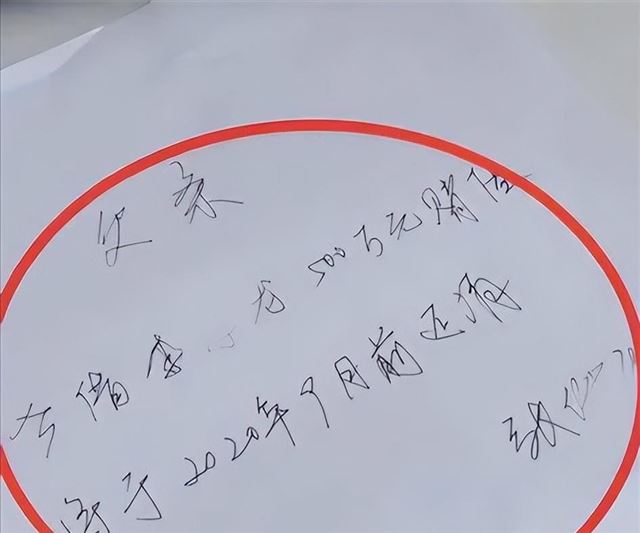 欠条
今借李 龙500万元赌债
将于2020年9月前还清